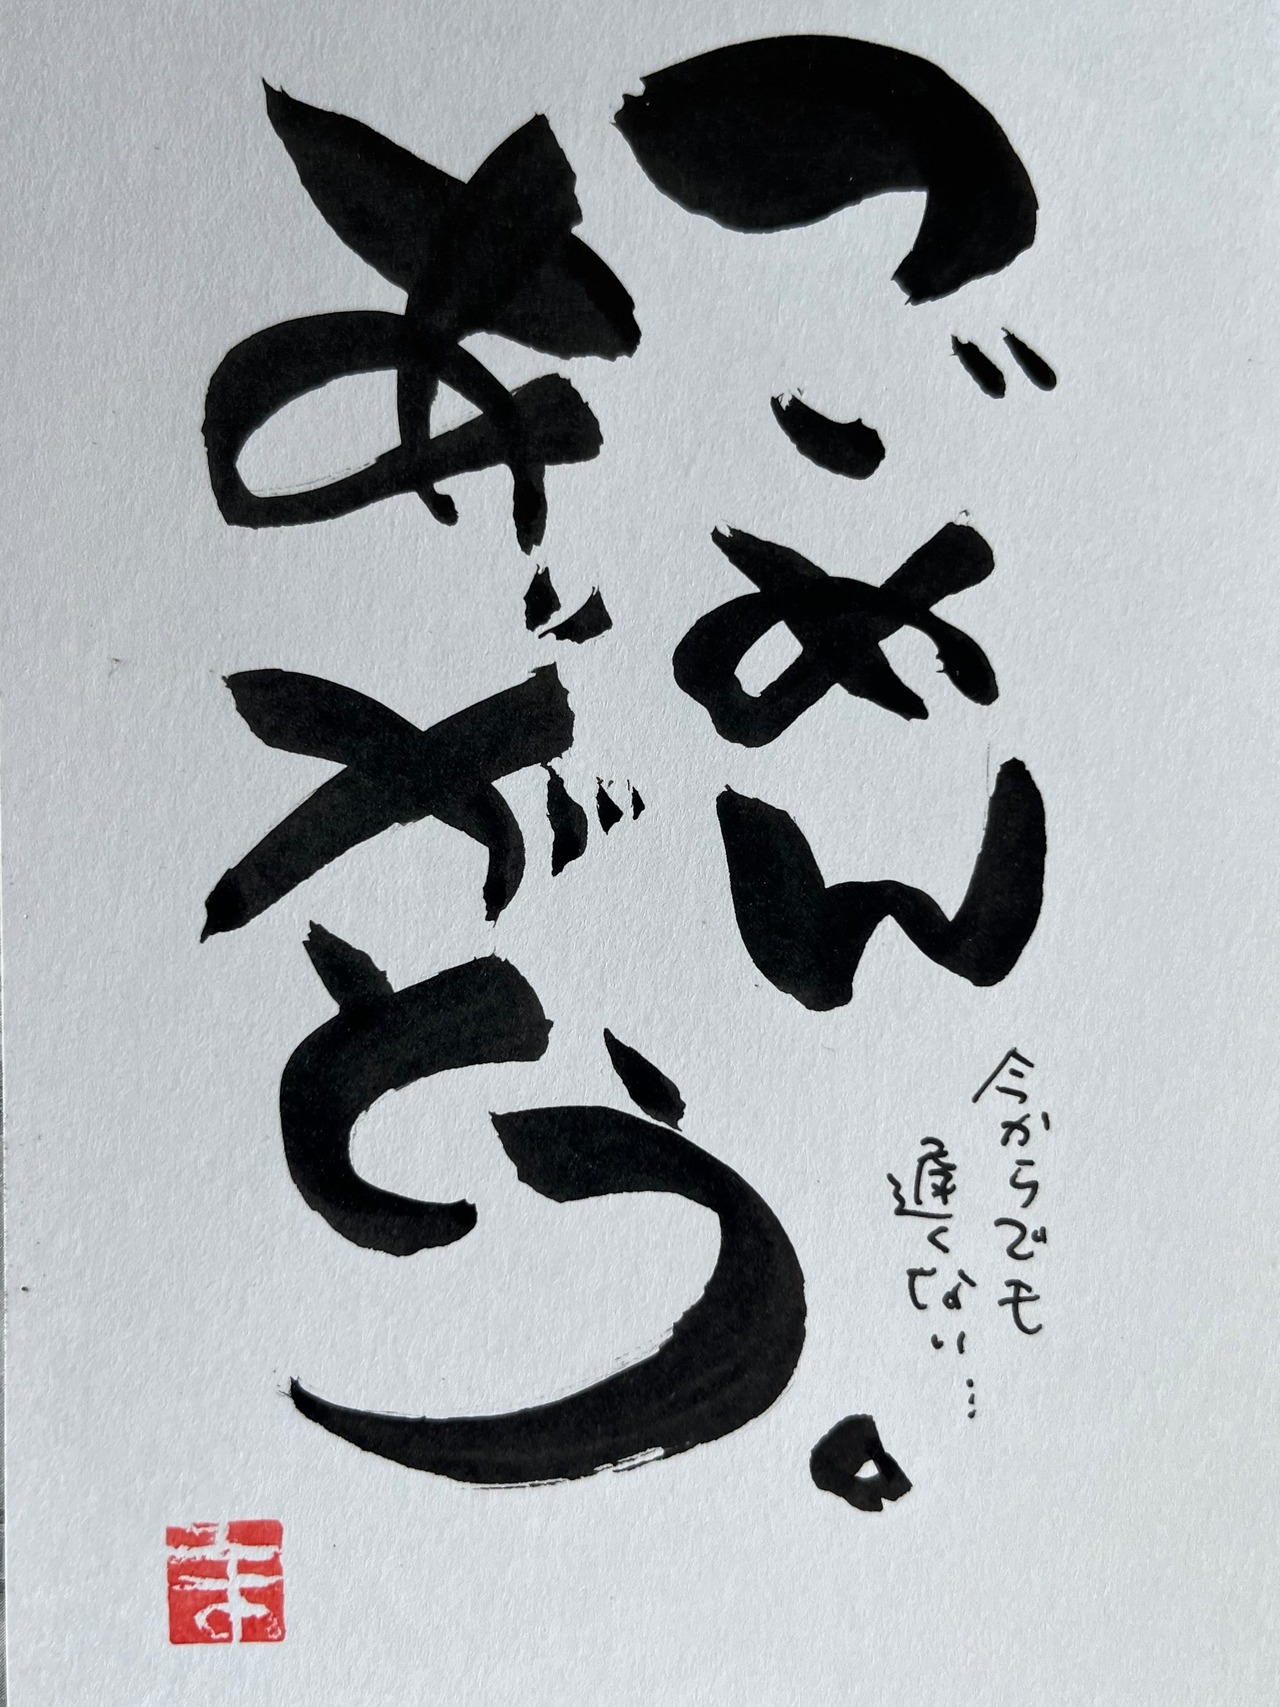 ごめん
今からでも
遅くない…
ありがとう。
ま